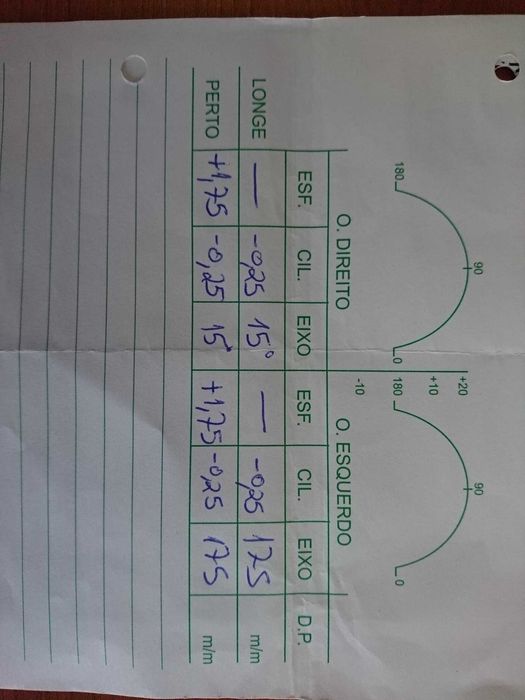 90 90
180 0 180 0
+20
+10
-10
O. DIREITO O. ESQUERDO
ESF. CIL. EIXO ESF. CIL. EIXO D.P.
LONGE — -0,25 15° — -0,25 175 m/m
PERTO +1,75 -0,25 15° +1,75 -0,25 175 m/m